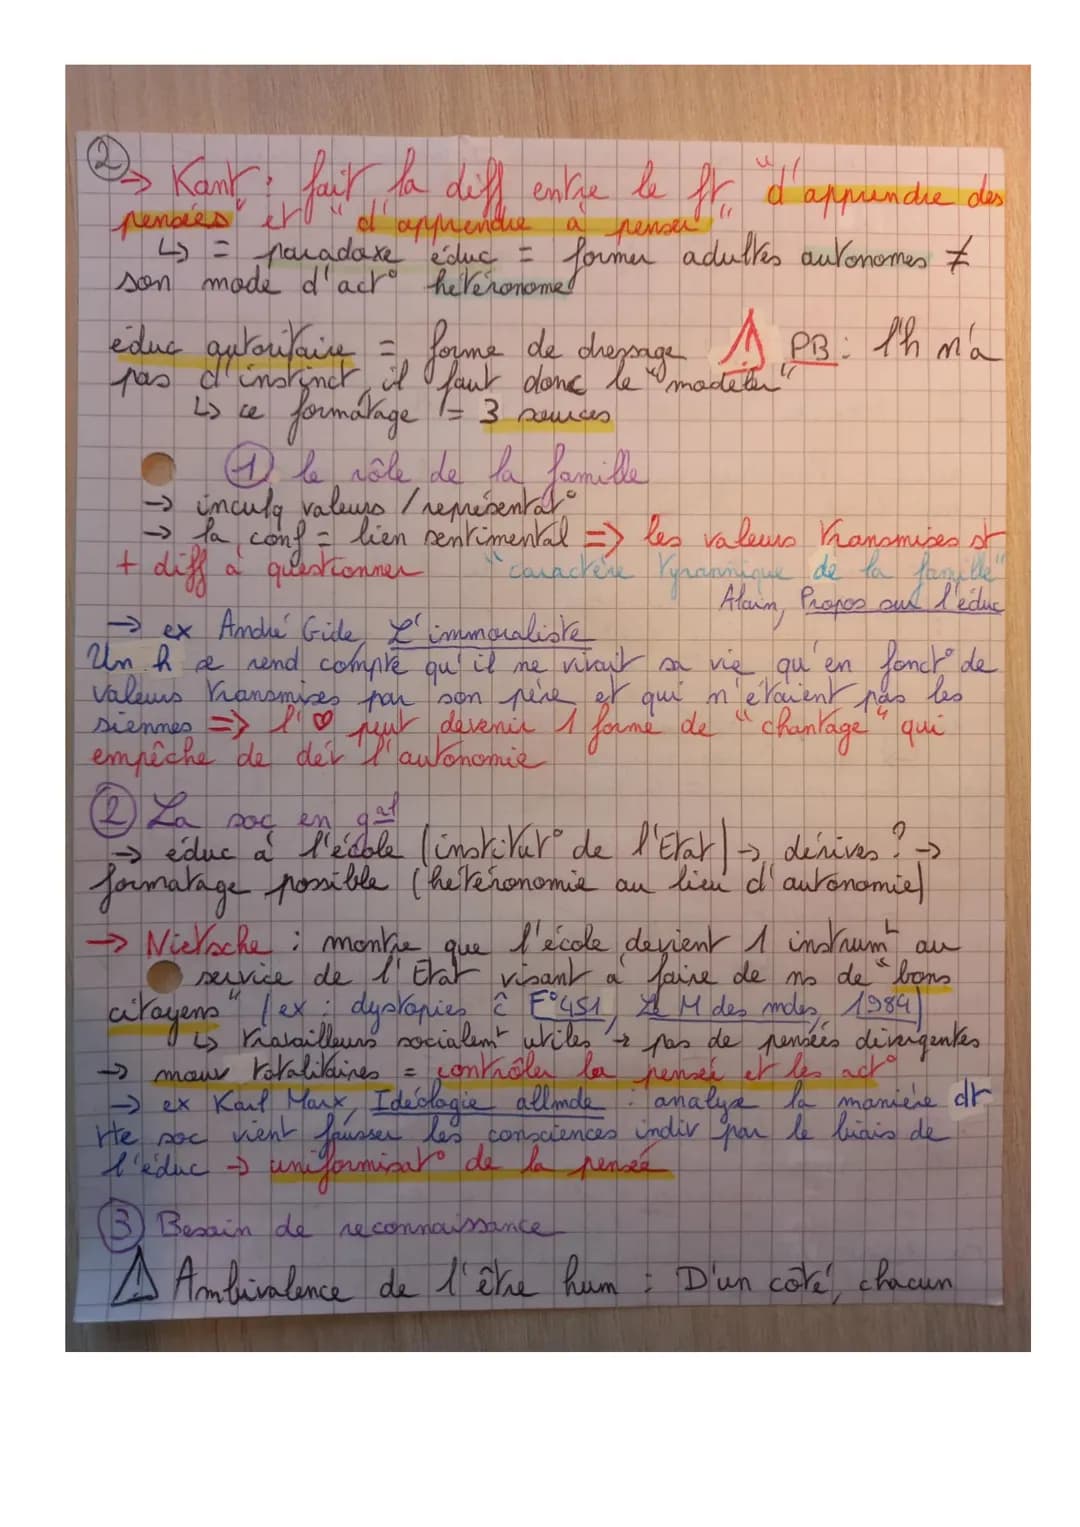 ②
→ Kant : fait la diff entre le ft "d'apprendre des
pensées" et "d'apprendre à penser"
↳ = paradoxe éduc = former adultes autonomes ≠
son mode d'act° hétéronome
éduc autoritaire = forme de dressage ⚠ PB : l'h n'a
pas d'instinct, il faut donc le "modeler"
↳ ce formatage = 3 sources
① le rôle de la famille
→ inculq valeurs / représentat°
→ la conf = lien sentimental => les valeurs transmises st
+ diff à questionner "caractère tyrannique de la famille"
Alain, Propos sur l'éduc
→ ex André Gide, L'immoraliste
Un h se rend compte qu'il ne vivait sa vie qu'en fonct° de
valeurs transmises par son père et qui n'étaient pas les
siennes => l'♡ peut devenir 1 forme de "chantage" qui
empêche de dév l'autonomie
② La soc en gal
→ éduc à l'école (institut° de l'Etat) → dérives ? →
formatage possible (hétéronomie au lieu d'autonomie)
→ Nietsche : montre que l'école devient 1 instrumt au
service de l'Etat visant à faire de ns de "bons
citoyens" (ex : dystopies ĉ F°451, Le M des mdes, 1984)
↳ travailleurs socialemt utiles → pas de pensées divergentes
→ mouv totalitaires = contrôler la pensée et les act°
→ ex Karl Marx, Idéologie allmde : analyse la manière dt
tte soc vient fausser les consciences indiv par le biais de
l'éduc → uniformisat° de la pensée
③ Besoin de reconnaissance
⚠ Ambivalence de l'être hum : D'un côté, chacun